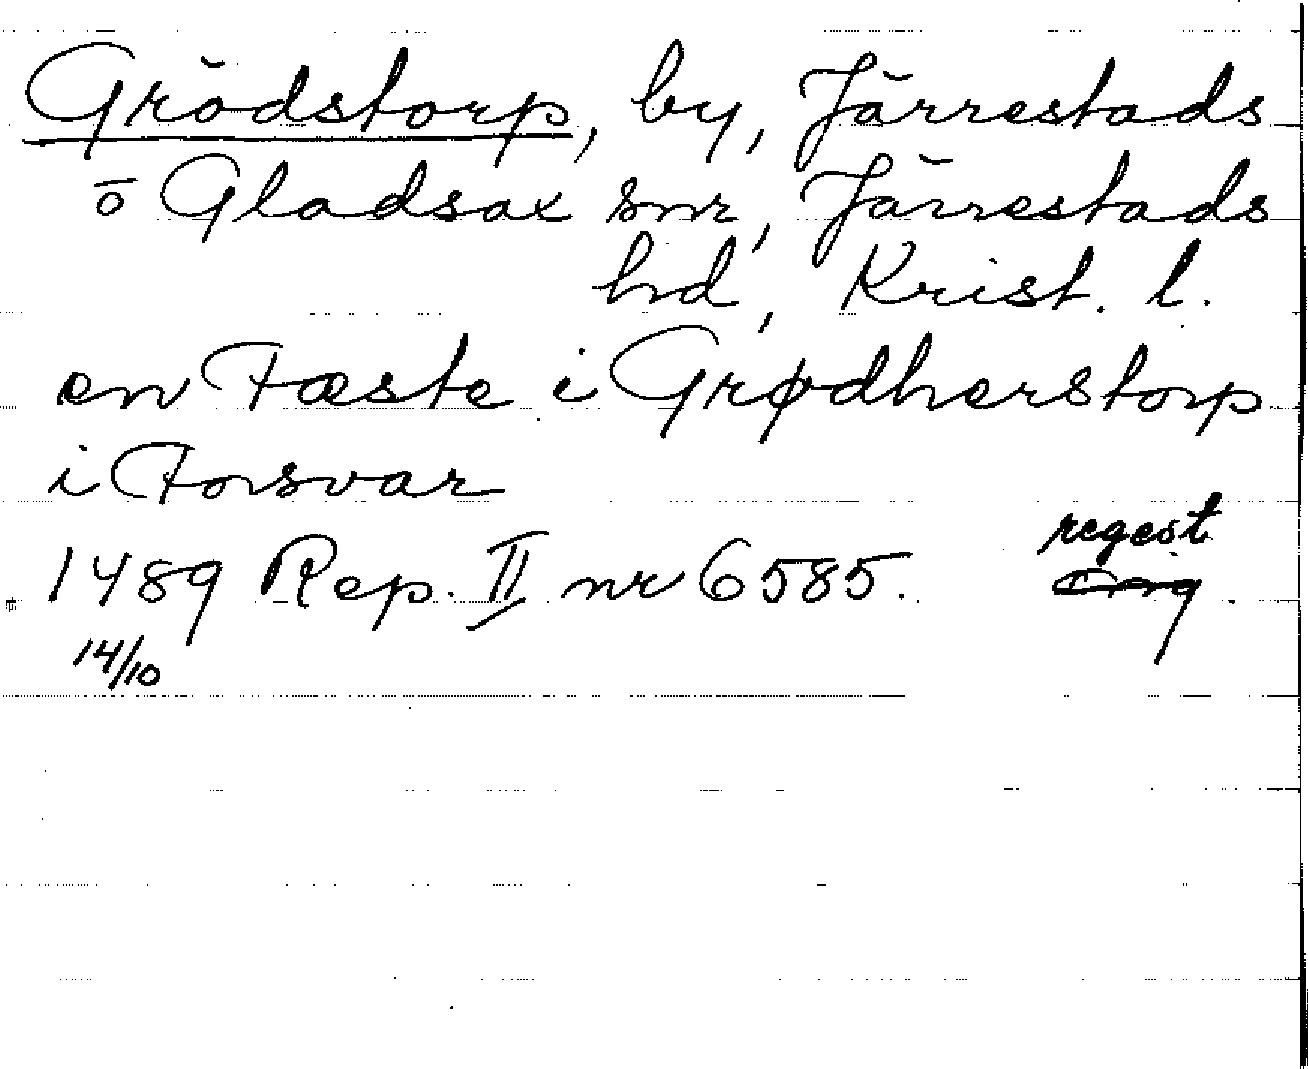 Grödstorp, by, Järrestads
o Gladsax snr, Järrestads
hd, Krist. l.
en Fæste i Grødherstorp
i Forsvar
1489 Rep. II nr 6585. regest
14/10